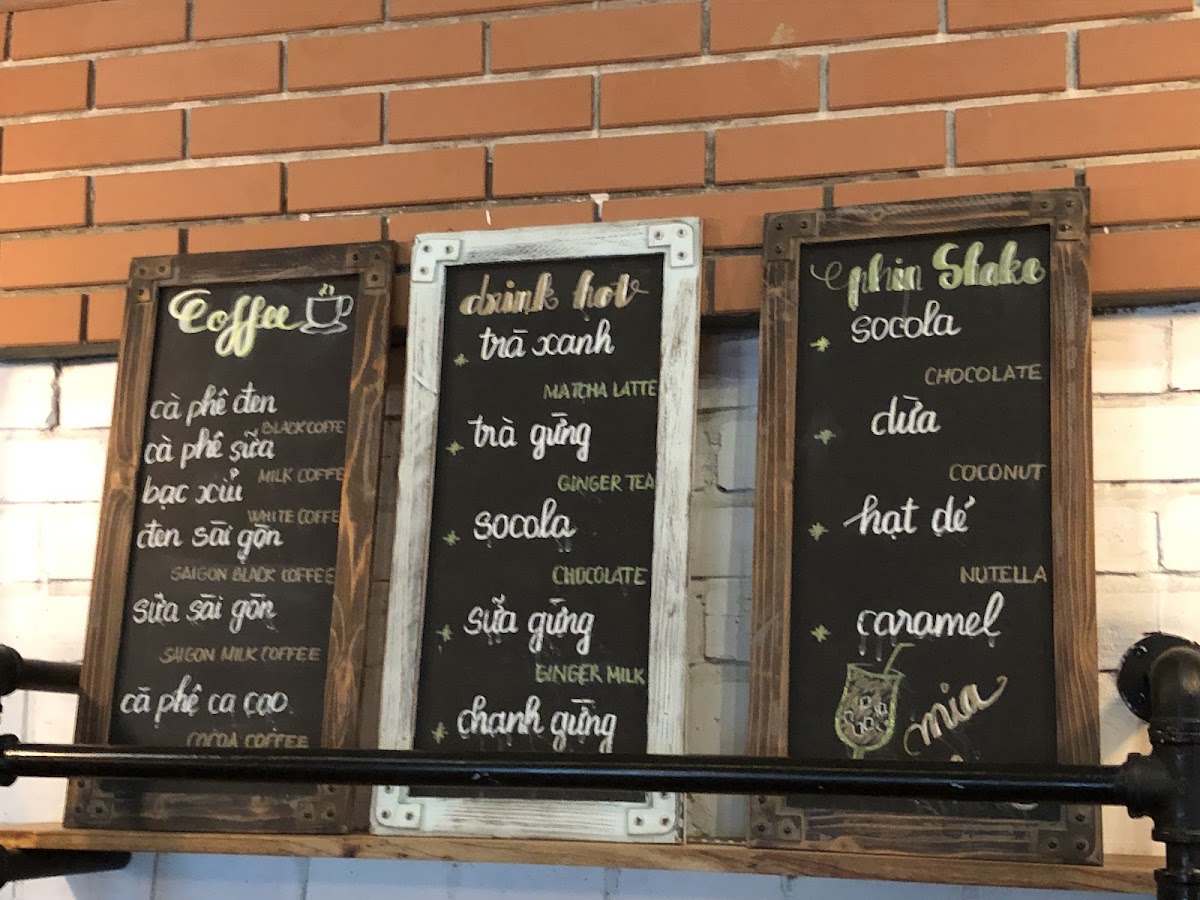 Coffee
cà phê đen
BLACK COFFE
cà phê sữa
MILK COFFE
bạc xỉu
WHITE COFFE
đen sài gòn
SAIGON BLACK COFFEE
sữa sài gòn
SAIGON MILK COFFEE
cà phê ca cao
COCOA COFFEE
drink hot
trà xanh
MATCHA LATTE
trà gừng
GINGER TEA
socola
CHOCOLATE
sữa gừng
GINGER MILK
chanh gừng
phin Shake
socola
CHOCOLATE
dừa
COCONUT
hạt dẻ
NUTELLA
caramel
mia